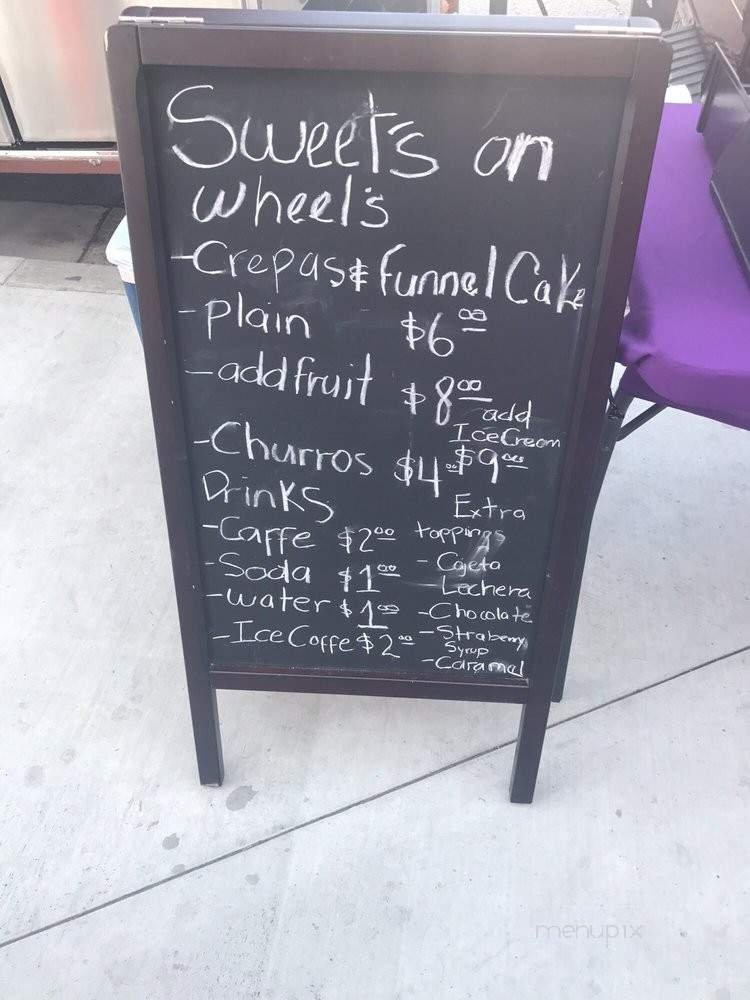 Sweet's on
wheel's
-Crepas & Funnel Cake
-Plain $6.00
-add fruit $8.00
add
Ice Cream
$9.00
-Churros $4.00
Drinks
-Caffe $2.00
-Soda $1.00
-water $1.00
-Ice Coffe $2.00
Extra
toppings
-Cajeta
-Lechera
-Chocolate
-Straberry
Syrup
-Caramel
menupix